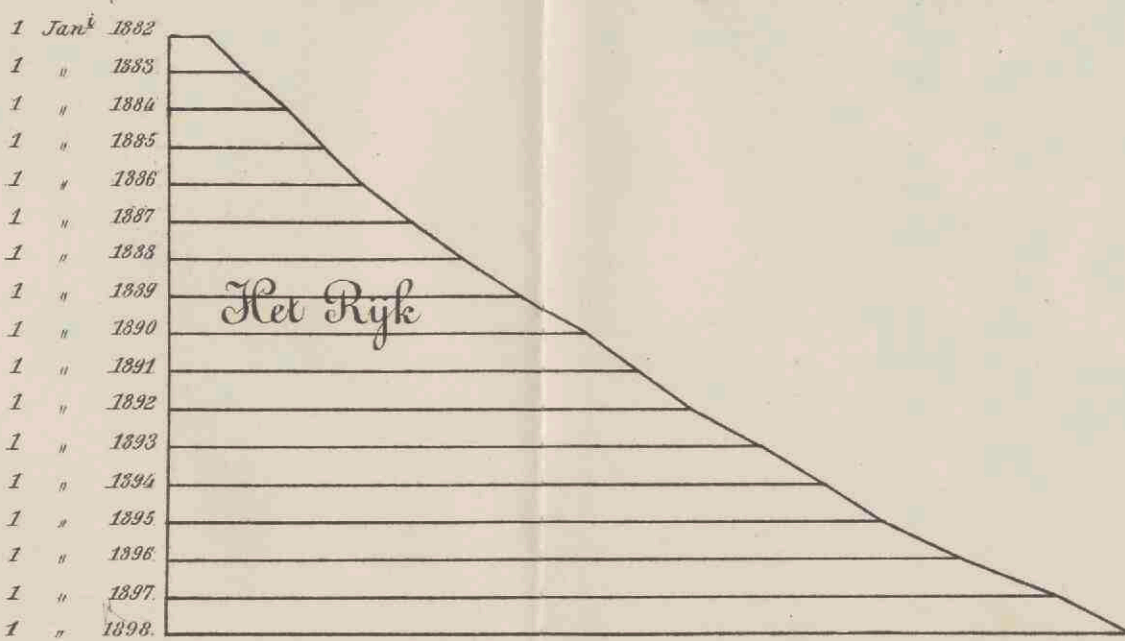 1 Janⁱ 1882
1 " 1883
1 " 1884
1 " 1885
1 " 1886
1 " 1887
1 " 1888
1 " 1889
Het Rijk
1 " 1890
1 " 1891
1 " 1892
1 " 1893
1 " 1894
1 " 1895
1 " 1896
1 " 1897
1 " 1898.